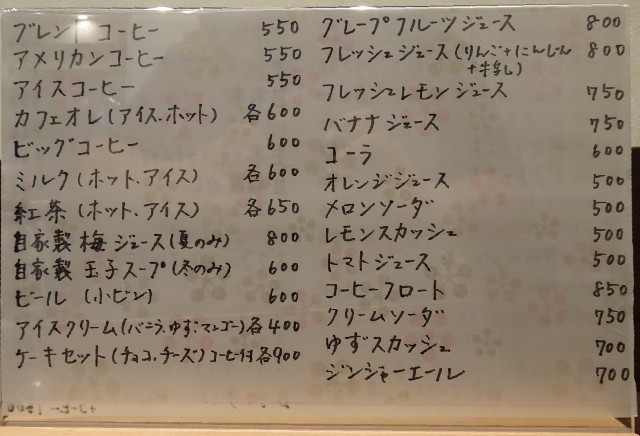 ブレンドコーヒー 550
アメリカンコーヒー 550
アイスコーヒー 550
カフェオレ(アイス.ホット) 各600
ビッグコーヒー 600
ミルク(ホット.アイス) 各600
紅茶(ホット.アイス) 各650
自家製 梅ジュース(夏のみ) 800
自家製 玉子スープ(冬のみ) 600
ビール (小ビン) 600
アイスクリーム(バニラ.ゆず.マンゴー)各400
ケーキセット(チョコ.チーズ)コーヒー付各900
グレープフルーツジュース 800
フレッシュジュース(りんご+にんじん 800
+牛乳)
フレッシュレモンジュース 750
バナナジュース 750
コーラ 600
オレンジジュース 500
メロンソーダ 500
レモンスカッシュ 500
トマトジュース 500
コーヒーフロート 850
クリームソーダ 750
ゆずスカッシュ 700
ジンジャーエール 700